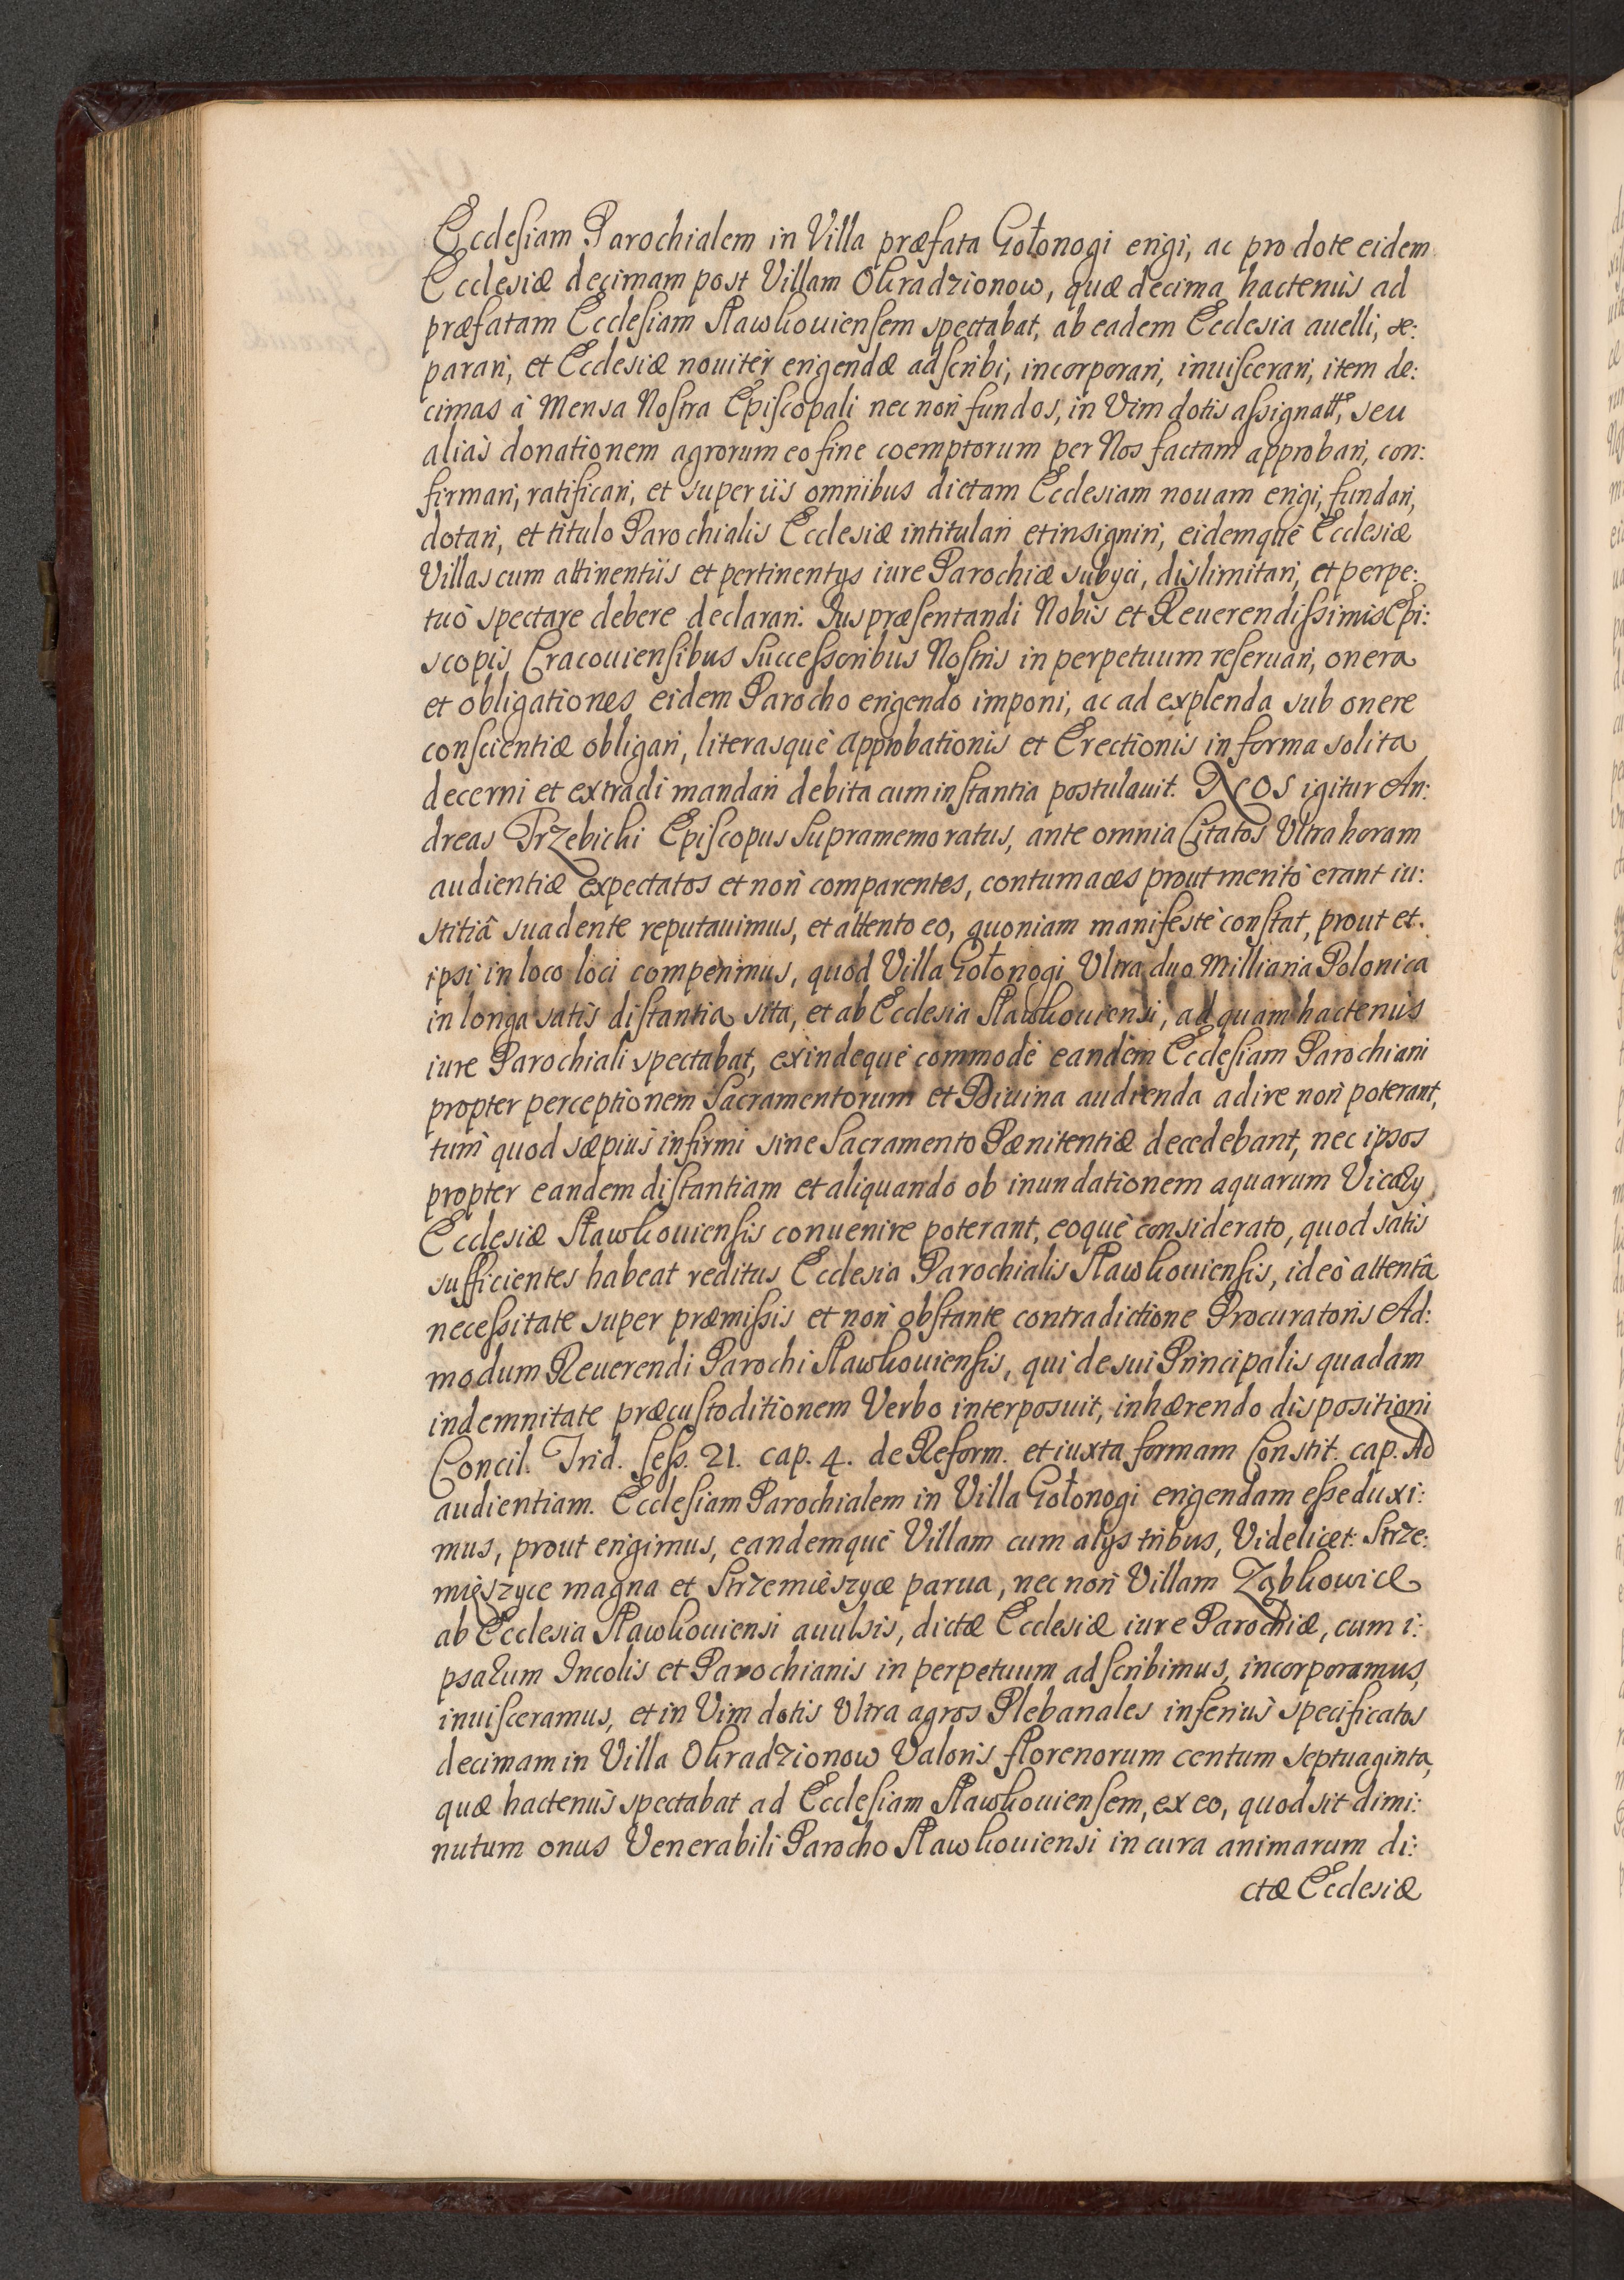 Ecclesiam Parochialem in Villa præfata Gołonogi erigi, ac pro dote eidem
Ecclesiæ decimam post Villam Okradzionow, quæ decima hactenùs ad
præfatam Ecclesiam Sławkouiensem spectabat, ab eadem Ecclesia auelli, se:
parari, et Ecclesiæ nouitèr erigendæ adscribi, incorporari, inuiscerari, item de:
cimas à Mensa Nostra Episcopali nec non fundos, in Vim dotis assignatt, seu
aliàs donationem agrorum eo fine coemptorum per Nos factam approbari, con:
firmari, ratificari, et super iis omnibus dictam Ecclesiam nouam erigi, fundari,
dotari, et titulo Parochialis Ecclesiæ intitulari et insigniri, eidemquè Ecclesiæ
Villas cum attinentiis et pertinentys iure Parochiæ subyci, dislimitari, et perpe:
tuò spectare debere declarari. Jus præsentandi Nobis et Reuerendissimis Epi:
scopis Cracouiensibus Successoribus Nostris in perpetuum reseruari, onera
et obligationes eidem Parocho erigendo imponi, ac ad explenda sub onere
conscientiæ obligari, literasquè approbationis et Erectionis in forma solita
decerni et extradi mandari debita cum instantia postulauit. NOS igitur An:
dreas Trzebicki Episcopus Supramemoratus, ante omnia Citatos Vltra horam
audientiæ expectatos et non comparentes, contumaces prout meritò erant iu:
stitiâ suadente reputauimus, et attento eo, quoniam manifestè constat, prout et
ipsi in loco loci comperimus, quod Villa Gołonogi Vltra duo Milliaria Polonica
in longa satis distantia sita, et ab Ecclesia Sławkouiensi, ad quam hactenùs
iure Parochiali spectabat, exindequè commodè eandem Ecclesiam Parochiani
propter perceptionem Sacramentorum et Diuina audienda adire non poterant,
tum quod sæpiùs infirmi sine Sacramento Pænitentiæ decedebant, nec ipsos
propter eandem distantiam et aliquando ob inundationem aquarum Vicary
Ecclesiæ Sławkouiensis conuenire poterant, eoquè considerato, quod satis
sufficientes habeat reditus Ecclesia Parochialis Sławkouiensis, ideò attentâ
necessitate super præmissis et non obstante contradictione Procuratoris Ad:
modum Reuerendi Parochi Sławkouiensis, qui de sui Principalis quadam
indemnitate præcustoditionem Verbo interposuit, inhærendo dispositioni
Concil. Trid. Sess. 21. cap. 4. de Reform. et iuxta formam Constit. cap. Ad
audientiam. Ecclesiam Parochialem in Villa Gołonogi erigendam esse duxi:
mus, prout erigimus, eandemquè Villam cum alys tribus, Videlicet: Strze:
mięszyce magna et Strzemięszyce parua, nec non Villam Ząbkowice
ab Ecclesia Sławkouiensi auulsis, dictæ Ecclesiæ iure Parochiæ, cum i:
psarum Incolis et Parochianis in perpetuum adscribimus, incorporamus,
inuisceramus, et in Vim dotis Vltra agros Plebanales inferiùs specificatos
decimam in Villa Okradzionow Valoris florenorum centum septuaginta,
quæ hactenùs spectabat ad Ecclesiam Sławkouiensem, ex eo, quod sit dimi:
nutum onus Venerabili Parocho Sławkouiensi in cura animarum di:
ctæ Ecclesiæ